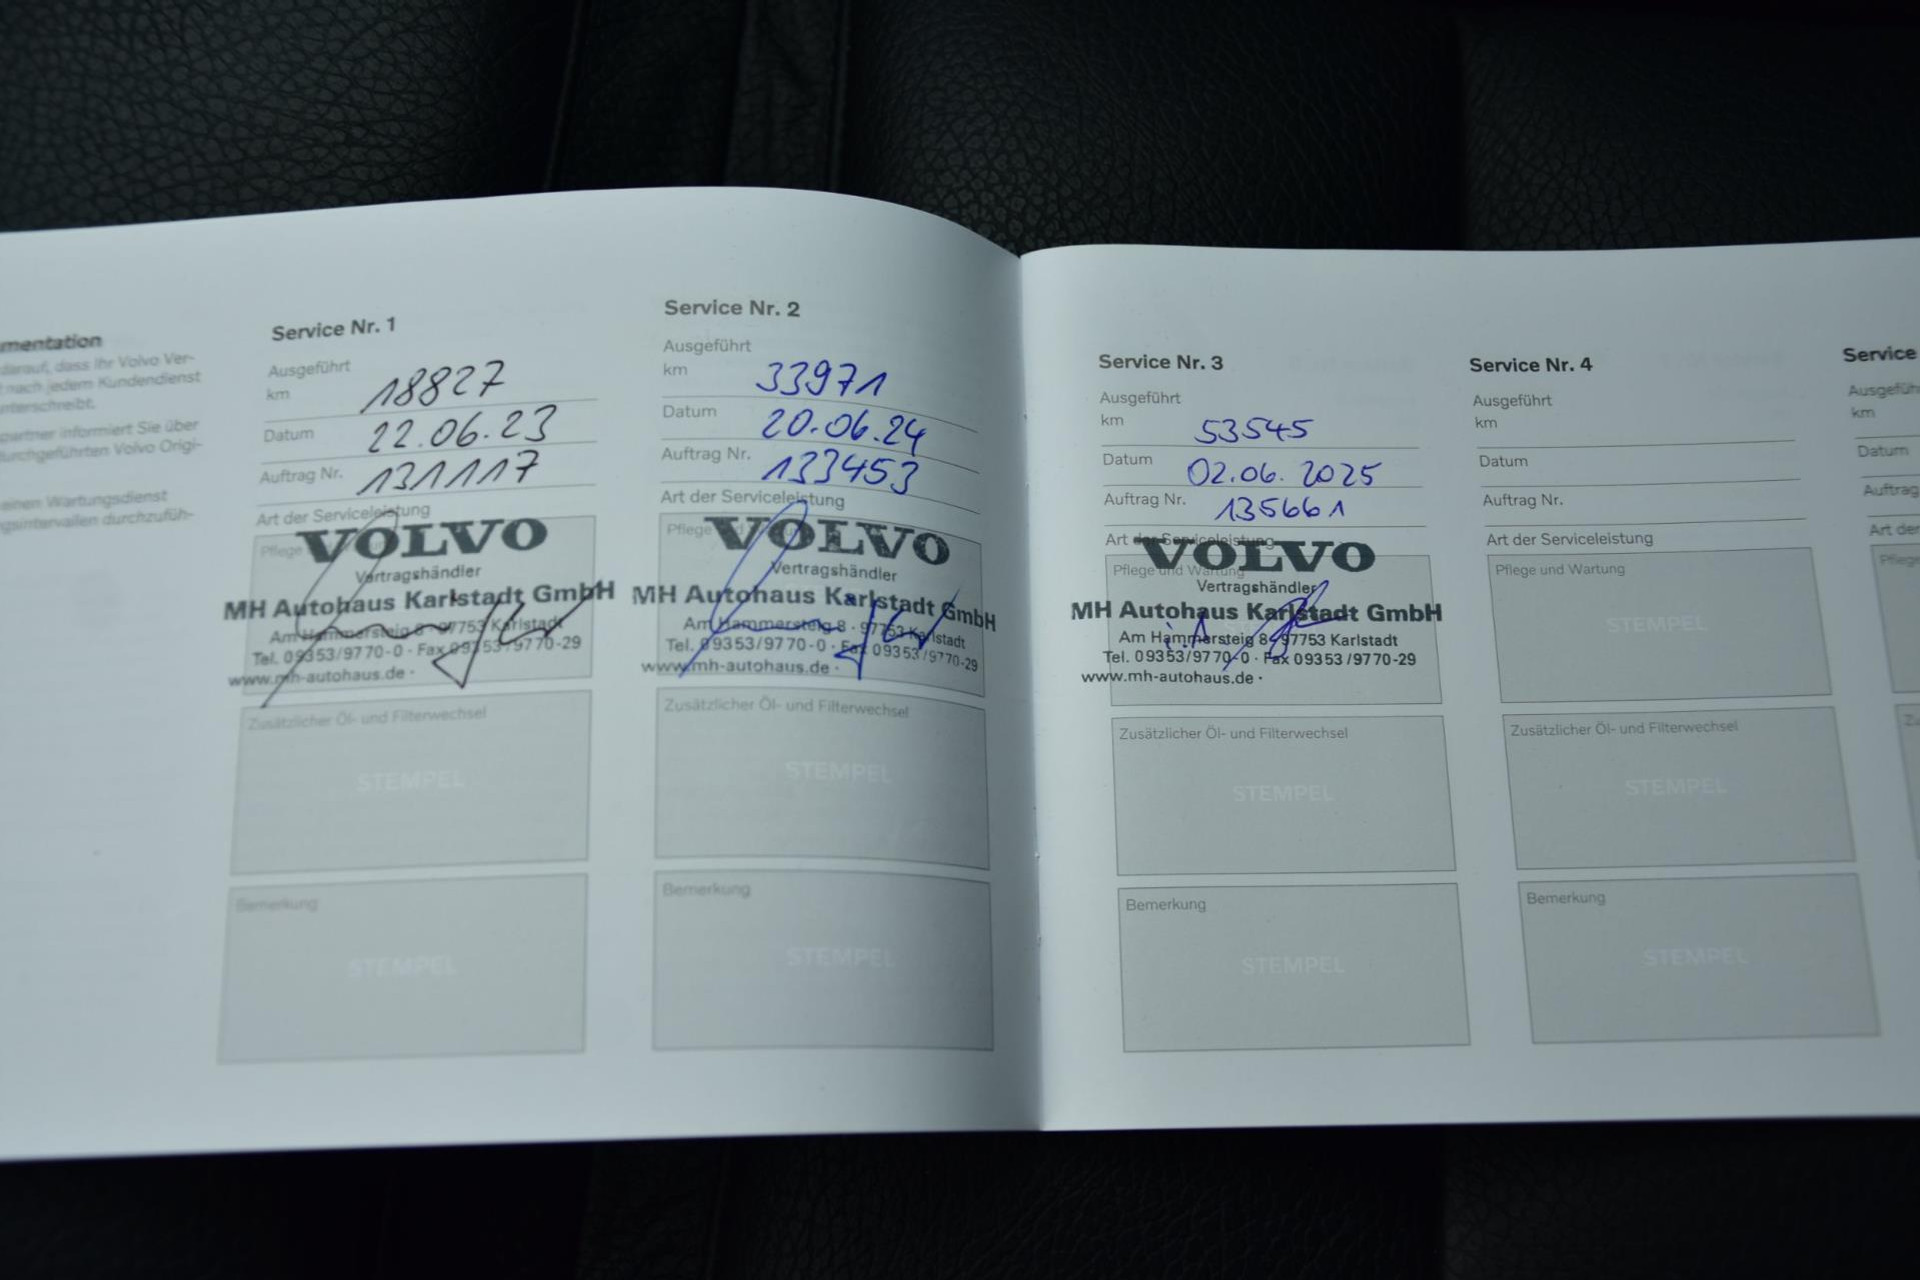 mentation
darauf, dass Ihr Volvo Ver-
nach jedem Kundendienst
nterschreibt.
partner informiert Sie über
durchgeführten Volvo Origi-
einen Wartungsdienst
gsintervallen durchzufüh-
Service Nr. 1
Ausgeführt
km 18827
Datum 22.06.23
Auftrag Nr. 131117
Art der Serviceleistung
Pflege
VOLVO
Vertragshändler
MH Autohaus Karlstadt GmbH
Am Hammersteig 8 · 97753 Karlstadt
Tel. 09353/9770-0 · Fax 09353/9770-29
www.mh-autohaus.de ·
Zusätzlicher Öl- und Filterwechsel
STEMPEL
Bemerkung
STEMPEL
Service Nr. 2
Ausgeführt
km 33971
Datum 20.06.24
Auftrag Nr. 133453
Art der Serviceleistung
Pflege und
VOLVO
Vertragshändler
MH Autohaus Karlstadt GmbH
Am Hammersteig 8 · 97753 Karlstadt
Tel. 09353/9770-0 · Fax 09353/9770-29
www.mh-autohaus.de ·
Zusätzlicher Öl- und Filterwechsel
STEMPEL
Bemerkung
STEMPEL
Service Nr. 3
Ausgeführt
km 53545
Datum 02.06.2025
Auftrag Nr. 135661
Art der Serviceleistung
Pflege und Wartung
VOLVO
Vertragshändler
MH Autohaus Karlstadt GmbH
Am Hammersteig 8 · 97753 Karlstadt
Tel. 09353/9770-0 · Fax 09353/9770-29
www.mh-autohaus.de ·
i.A
Zusätzlicher Öl- und Filterwechsel
STEMPEL
Bemerkung
STEMPEL
Service Nr. 4
Ausgeführt
km
Datum
Auftrag Nr.
Art der Serviceleistung
Pflege und Wartung
STEMPEL
Zusätzlicher Öl- und Filterwechsel
STEMPEL
Bemerkung
STEMPEL
Service
Ausgeführ
km
Datum
Auftrag
Art der
Pflege
Zu